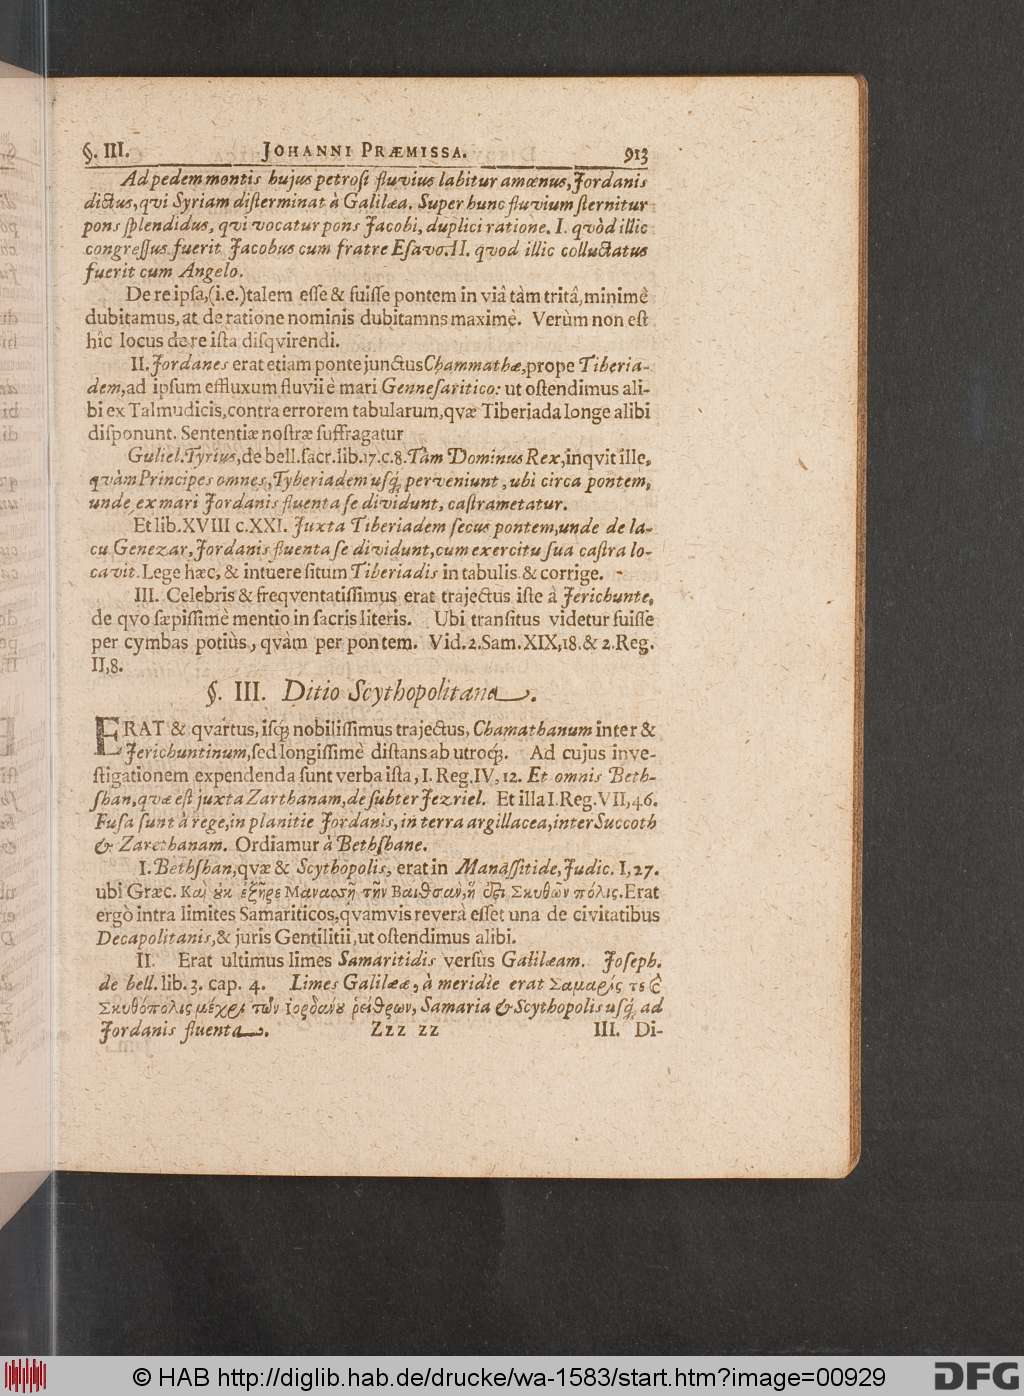 §. III. JOHANNI PRÆMISSA. 913
Ad pedem montis hujus petrosi fluvius labitur amœnus, Jordanis
dictus, qvi Syriam disterminat à Galilæa. Super hunc fluvium sternitur
pons splendidus, qvi vocatur pons Jacobi, duplici ratione. I. qvòd illic
congressus fuerit Jacobus cum fratre Esavo. II. qvod illic colluctatus
fuerit cum Angelo.
De re ipsa, (i.e.) talem esse & fuisse pontem in viâ tàm tritâ, minimè
dubitamus, at de ratione nominis dubitamns maximè. Verùm non est
hîc locus de re ista disqvirendi.
II. Jordanes erat etiam ponte junctus Chammathæ, prope Tiberia-
dem, ad ipsum effluxum fluvii è mari Gennesaritico: ut ostendimus ali-
bi ex Talmudicis, contra errorem tabularum, qvæ Tiberiada longe alibi
disponunt. Sententiæ nostræ suffragatur
Guliel. Tyrius, de bell. sacr. lib. 17. c. 8. Tàm Dominus Rex, inqvit ille,
qvàm Principes omnes, Tyberiadem usq; perveniunt, ubi circa pontem,
unde ex mari Jordanis fluenta se dividunt, castrametatur.
Et lib. XVIII c. XXI. Juxta Tiberiadem secus pontem, unde de la-
cu Genezar, Jordanis fluenta se dividunt, cum exercitu sua castra lo-
cavit. Lege hæc, & intuere situm Tiberiadis in tabulis & corrige.
III. Celebris & freqventatissimus erat trajectus iste à Jerichunte,
de qvo sæpissimè mentio in sacris literis. Ubi transitus videtur fuisse
per cymbas potiùs, qvàm per pontem. Vid. 2. Sam. XIX, 18. & 2. Reg.
II, 8.
§. III. Ditio Scythopolitana.
ERAT & qvartus, isq; nobilissimus trajectus, Chamathanum inter &
Jerichuntinum, sed longissimè distans ab utroq;. Ad cujus inve-
stigationem expendenda sunt verba ista, I. Reg. IV, 12. Et omnis Beth-
shan, qvæ est juxta Zarthanam, de subter Jezriel. Et illa I. Reg. VII, 46.
Fusa sunt à rege, in planitie Jordanis, in terra argillacea, inter Succoth
& Zarethanam. Ordiamur à Bethshane.
I. Bethshan, qvæ & Scythopolis, erat in Manassitide, Judic. I, 27.
ubi Græc. Καὶ ȣκ ἐξῆρε Μανασσῆ τὴν Βαιθσαν, ἥ ἐςι Σκυθῶν πόλις. Erat
ergò intra limites Samariticos, qvamvis reverà esset una de civitatibus
Decapolitanis, & juris Gentilitii, ut ostendimus alibi.
II. Erat ultimus limes Samaritidis versus Galilæam. Joseph.
de bell. lib. 3. cap. 4. Limes Galilææ, à meridie erat Σαμαρίς τε ϗ
Σκυθόπολις μέχρι τῶν ἰορδάνȣ ῥείθρων, Samaria & Scythopolis usq; ad
Jordanis fluenta. Zzz zz III. Di-
© HAB http://diglib.hab.de/drucke/wa-1583/start.htm?image=00929
DFG